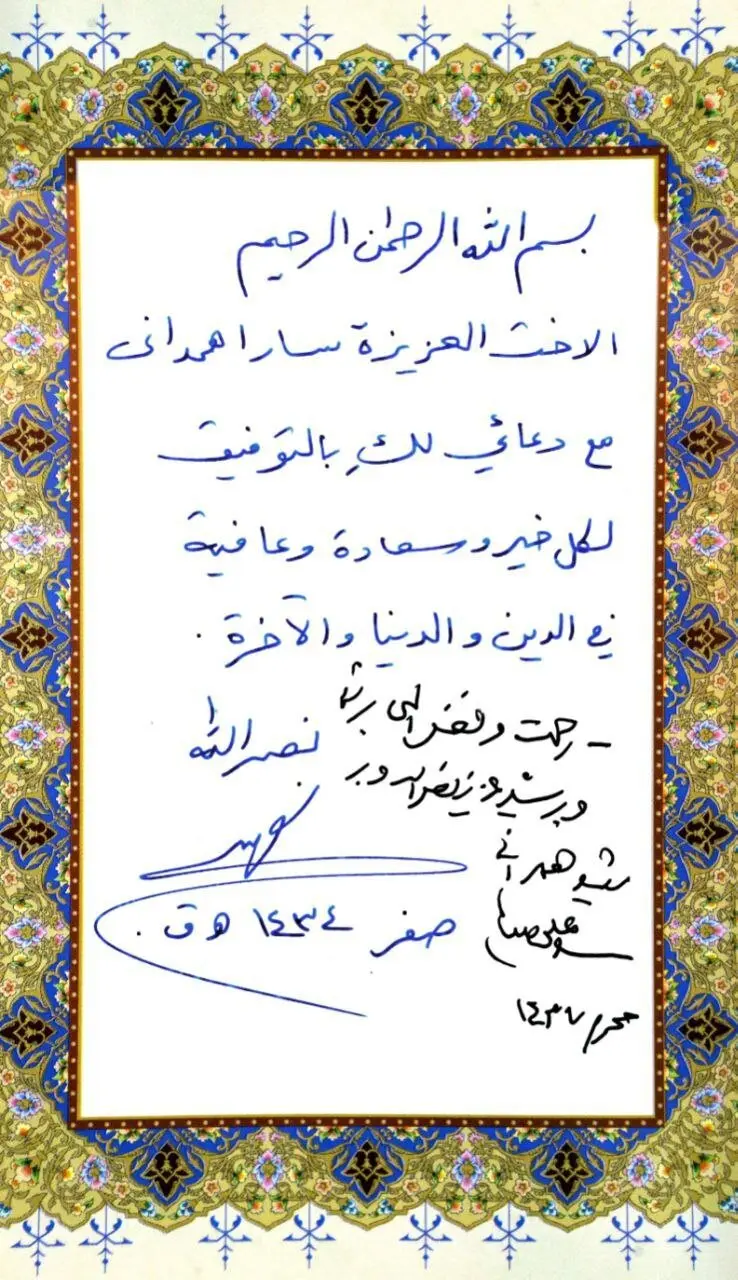 بسم الله الرحمن الرحيم
الاخت العزيزة سارا همدانى
مع دعائي لكِ بالتوفيق
لكل خير وسعادة وعافية
في الدين والدنيا والآخرة .
نصر الله
صفر ١٤٣٤ هـ ق .
– رحمت و فضل الهى بر شما
و بر شهيد عزيز نصر الله و بر
شهيد همدانى
سيد على
محرم ١٤٣٧